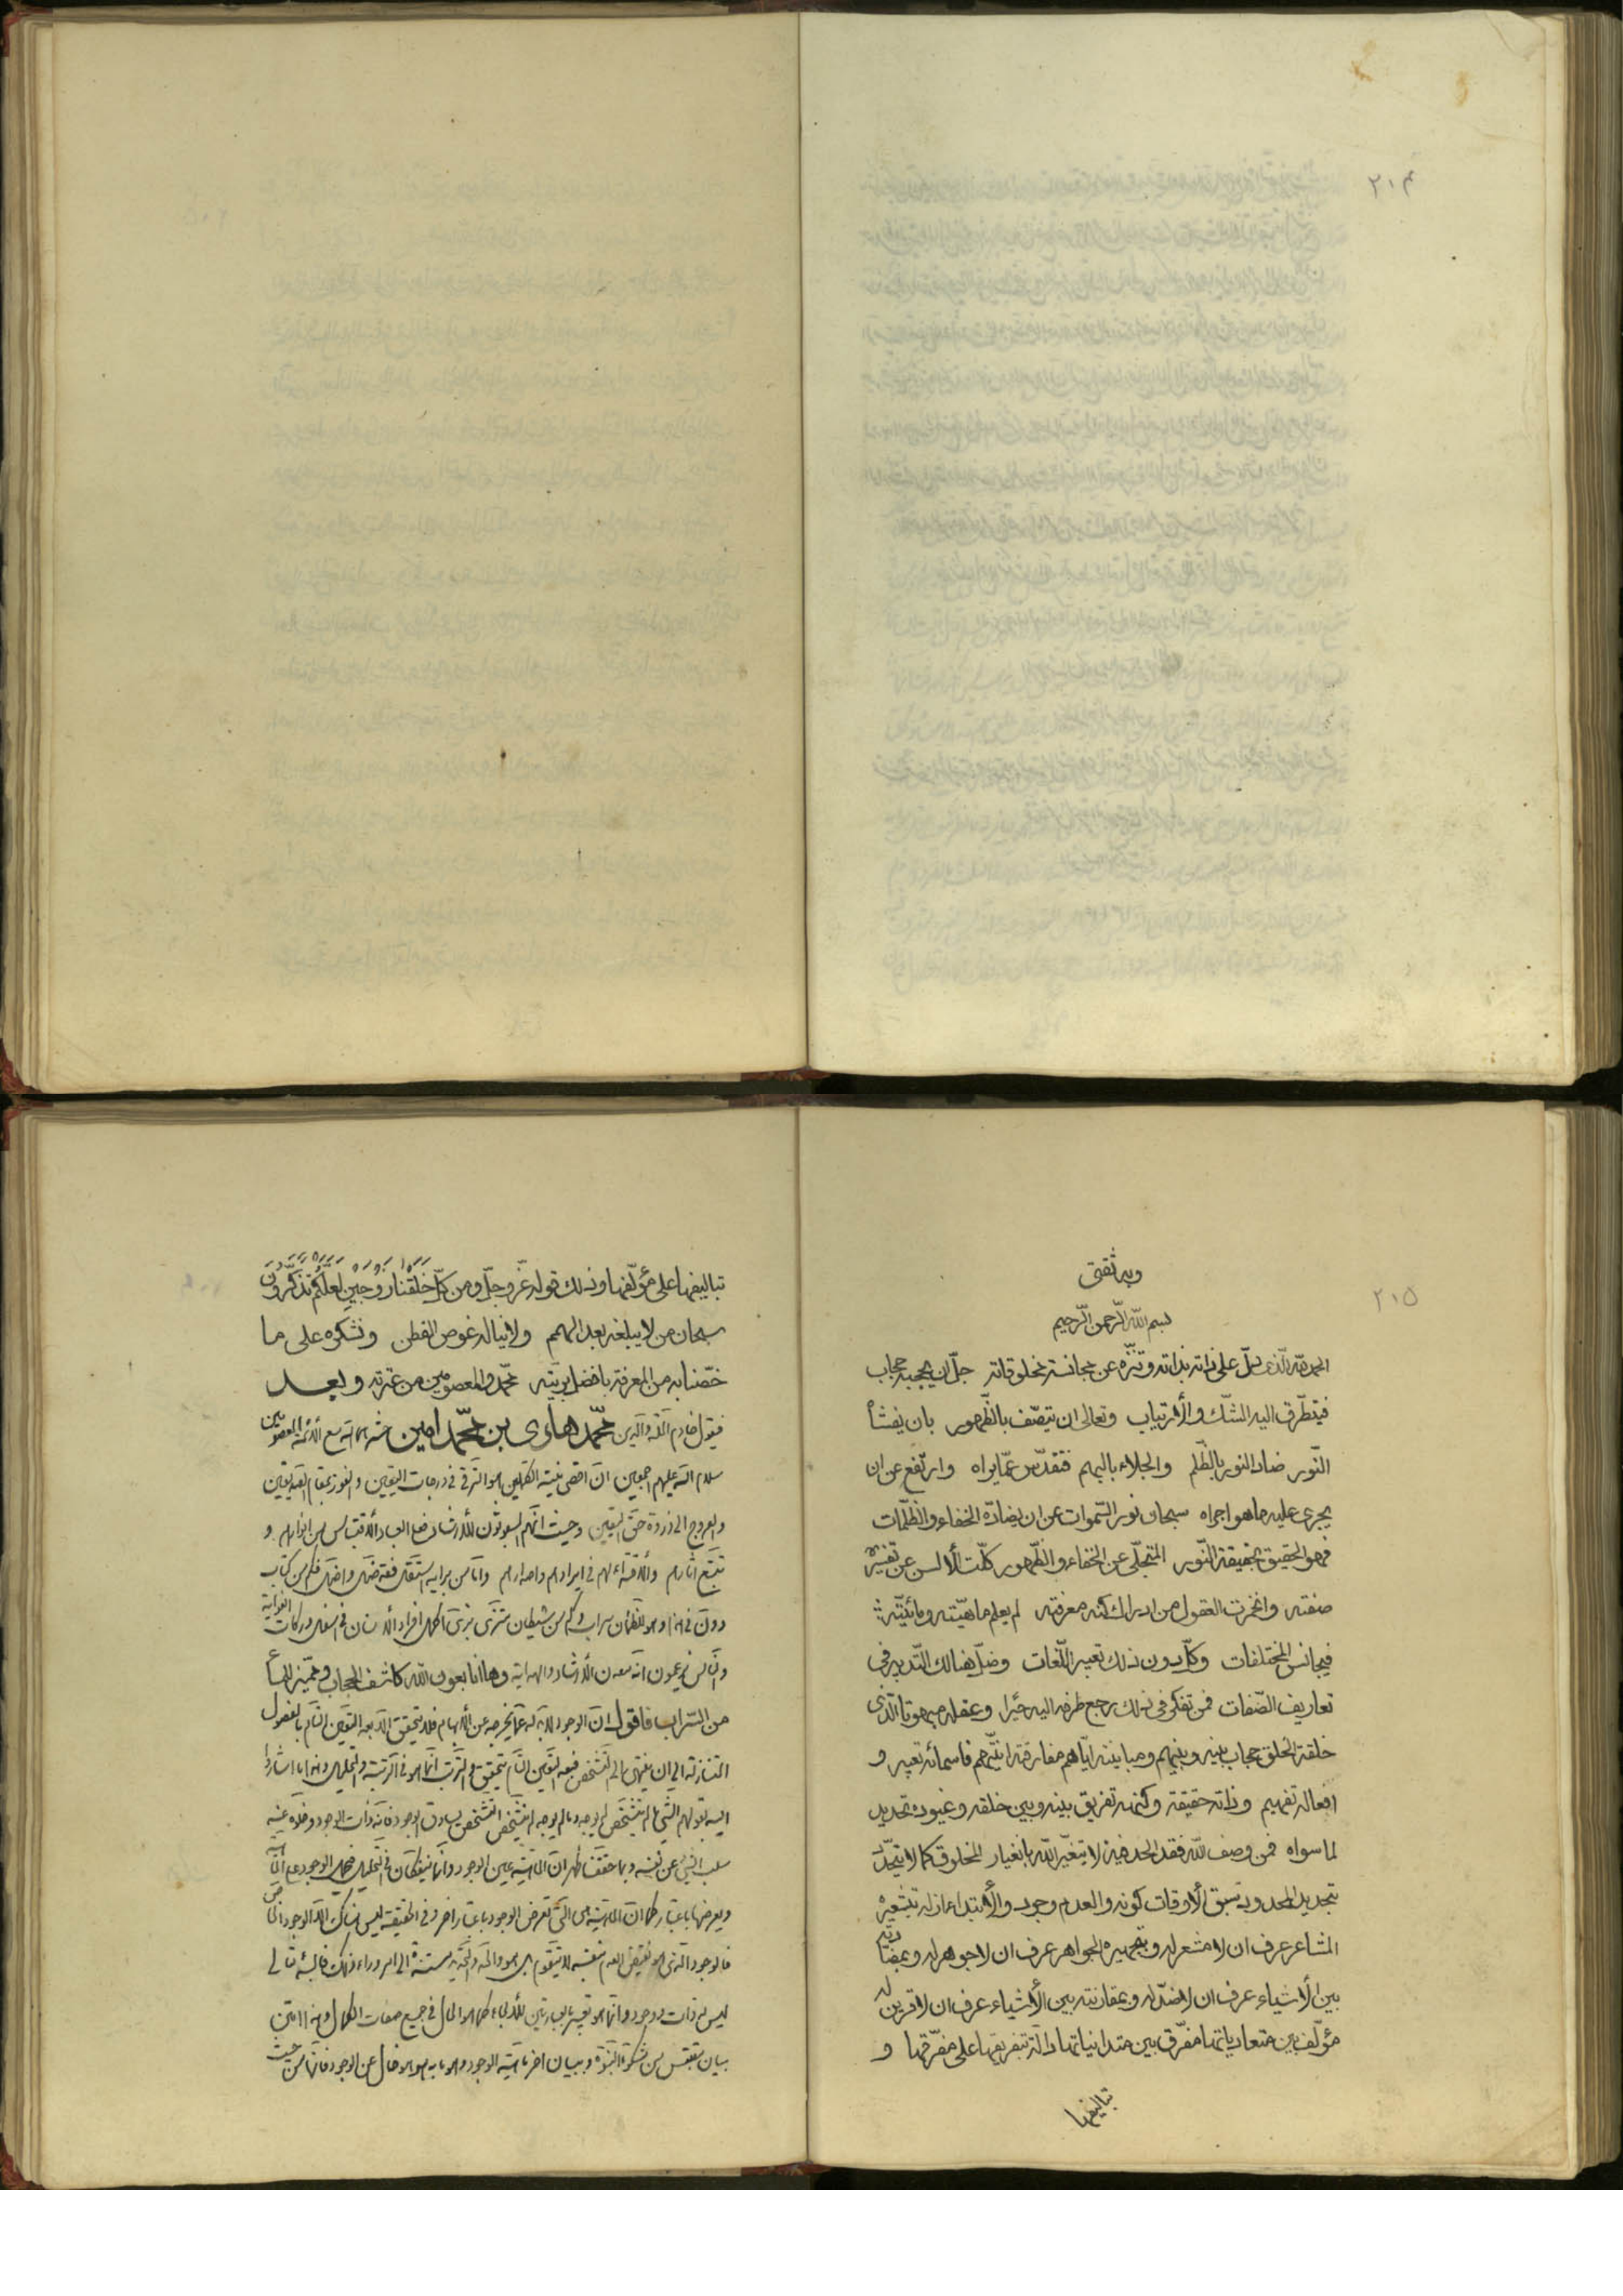 ٢١٤
٢١٥
وبه ثقتى
بسم الله الرحمن الرحيم
الحمد لله الذى دلّ على ذاته بذاته وتنزّه عن مجانسة مخلوقاته جلّ ان يحجبه حجاب
فيتطرّق اليه الشكّ والأرتياب وتعالى ان يتصّف بالظّهور بان ينشأ
النّور ضادّ النور بالظّلم والجلاء بالبهم فتقدّس عمّا يراه وارتفع عن ان
يجرى عليه ما هو اجراه سبحان نور السّموات عن ان يضادّه الخفاء والظّلمات
فهو الحقيق بحقيقة النّور المتجلّى عن الخفاء والظّهور كلّت الألسن عن تفسير
صفته وانحسرت العقول من ادراك كنه معرفته لم يعلم ماهيّته ومائيّته
فيجانس المختلفات وكلّ دون ذلك تعبير اللّغات وضلّ هنالك التّدبير فى
تعاريف الصّفات فمن تفكر فى ذلك رجع طرفه اليه حسيرا وعقله مبهوتا الّذى
خلقة الخلق حجاب بينه وبينهم ومباينته ايّاهم مفارقته انيّتهم فاسمائه تعبير و
افعاله تفهيم وذاته حقيقة وكنهه تفريق بينه وبين خلقه وغيوره تحديد
لما سواه فمن وصف الله فقد الحد فيه لا يتغيّر الله بانغيار المخلوق كما لا يتحدّد
بتحديد المحدود سبق الأوقات كونه والعدم وجوده والأبتداء ازله بتشعيره
المشاعر عرف ان لا مشعر له وبتجهيره الجواهر عرف ان لا جوهر له وبمضادّته
بين الأشياء عرف ان لا ضدّ له وبمقارنته بين الأشياء عرف ان لا قرين له
مؤلّف بين متعادياتها مفرّق بين متدانياتها دالّة بتفريقها على مفرّقها و
بتاليفها
بتاليفها على مؤلّفها وذلك قوله عزّ وجلّ ومن كلّ خَلَقْنا زَوْجَيْنِ لَعَلَّكُمْ تَذَكَّرُونَ
سبحان من لا يبلغه بعد الهمم ولا يناله غوص الفطن ونشكره على ما
خصّنا به من المعرفة بافضل بريّته محمّد والمعصومين من عترته وبعد
فيقول خادم العلم والدين محمّد هادى بن محمّد امين حشرهما الله مع الأئمّة المعصومين
سلام الله عليهم اجمعين انّ اقصى منية الكاملين هو الترقّى فى درجات اليقين والفوز بمقام الصديقين
والعروج الى ذروة حقّ اليقين وحيث انّهم المبعوثون للأرشاد فعلى العباد الأقتباس من انوارهم و
تتبّع اثارهم والأقتداء بهم فى ايرادهم واصدارهم وامّا من برايه استقلّ فقد ضلّ واضلّ فكم من كتاب
دوّن فى هذا وهو للظمأن سراب وكم من شيطان متزىّ بزىّ اكمل افراد الأنسان فى اسفل دركات الغواية
والنّاس يزعمون انّه معدن الأرشاد والهداية وها انا بعون الله كاشف الحجاب ومميّز الماء
من السّراب فاقول انّ الوجود لا بدّ له عمّا يخرجه عن الأبهام فلا يتحقق الّا بعد التعين التام بالفصول
المتنازلة الى ان ينتهى الى التشخص فبعد التعين التام يتحقق والترتّب انّما هو فى الرتبة والتحليل وهذا ما اشاروا
اليه بقولهم الشّئ ما لم يتشخّص لم يوجد وما لم يوجد لم يتشخّص التشخّص يساوق الوجود فانّه ذات الوجود وخلافه عينه
سلب الشئ عن نفسه وبما حققنا ظهر انّ الماهيّة عين الوجود وانّما ينفكان فى التحليل فيحمل الوجود على الماهيّة
ويعرضها باعتبار كما انّ الماهيّة هى الّتى تعرض الوجود باعتبار اخر وفى الحقيقة ليس هناك الّا الوجود الخاص
فالوجود الّذى هو نقيض العدم بنفسه لا يتقوّم بل هو والحدّ والحدية مستندة الى امر وراء ذلك فالله تعالى
ليس له ذات ووجود وانّما هو تعبير بعبارتين للأيماء كما هو الحال فى جميع صفات الكمال وهذا امتن
بيان مقتبس من مشكوة النبوّة وببيان اخر ماهيّة الوجود وهو ما به هو هو خال عن الوجود فانّها من حيث